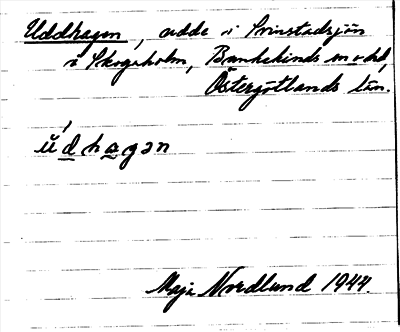 Uddhagen, udde i Svinstadsjön
i Skogsholm, Bankekinds sn o hd,
Östergötlands län.
ŭ́dhagən
Maja Nordlund 1944.